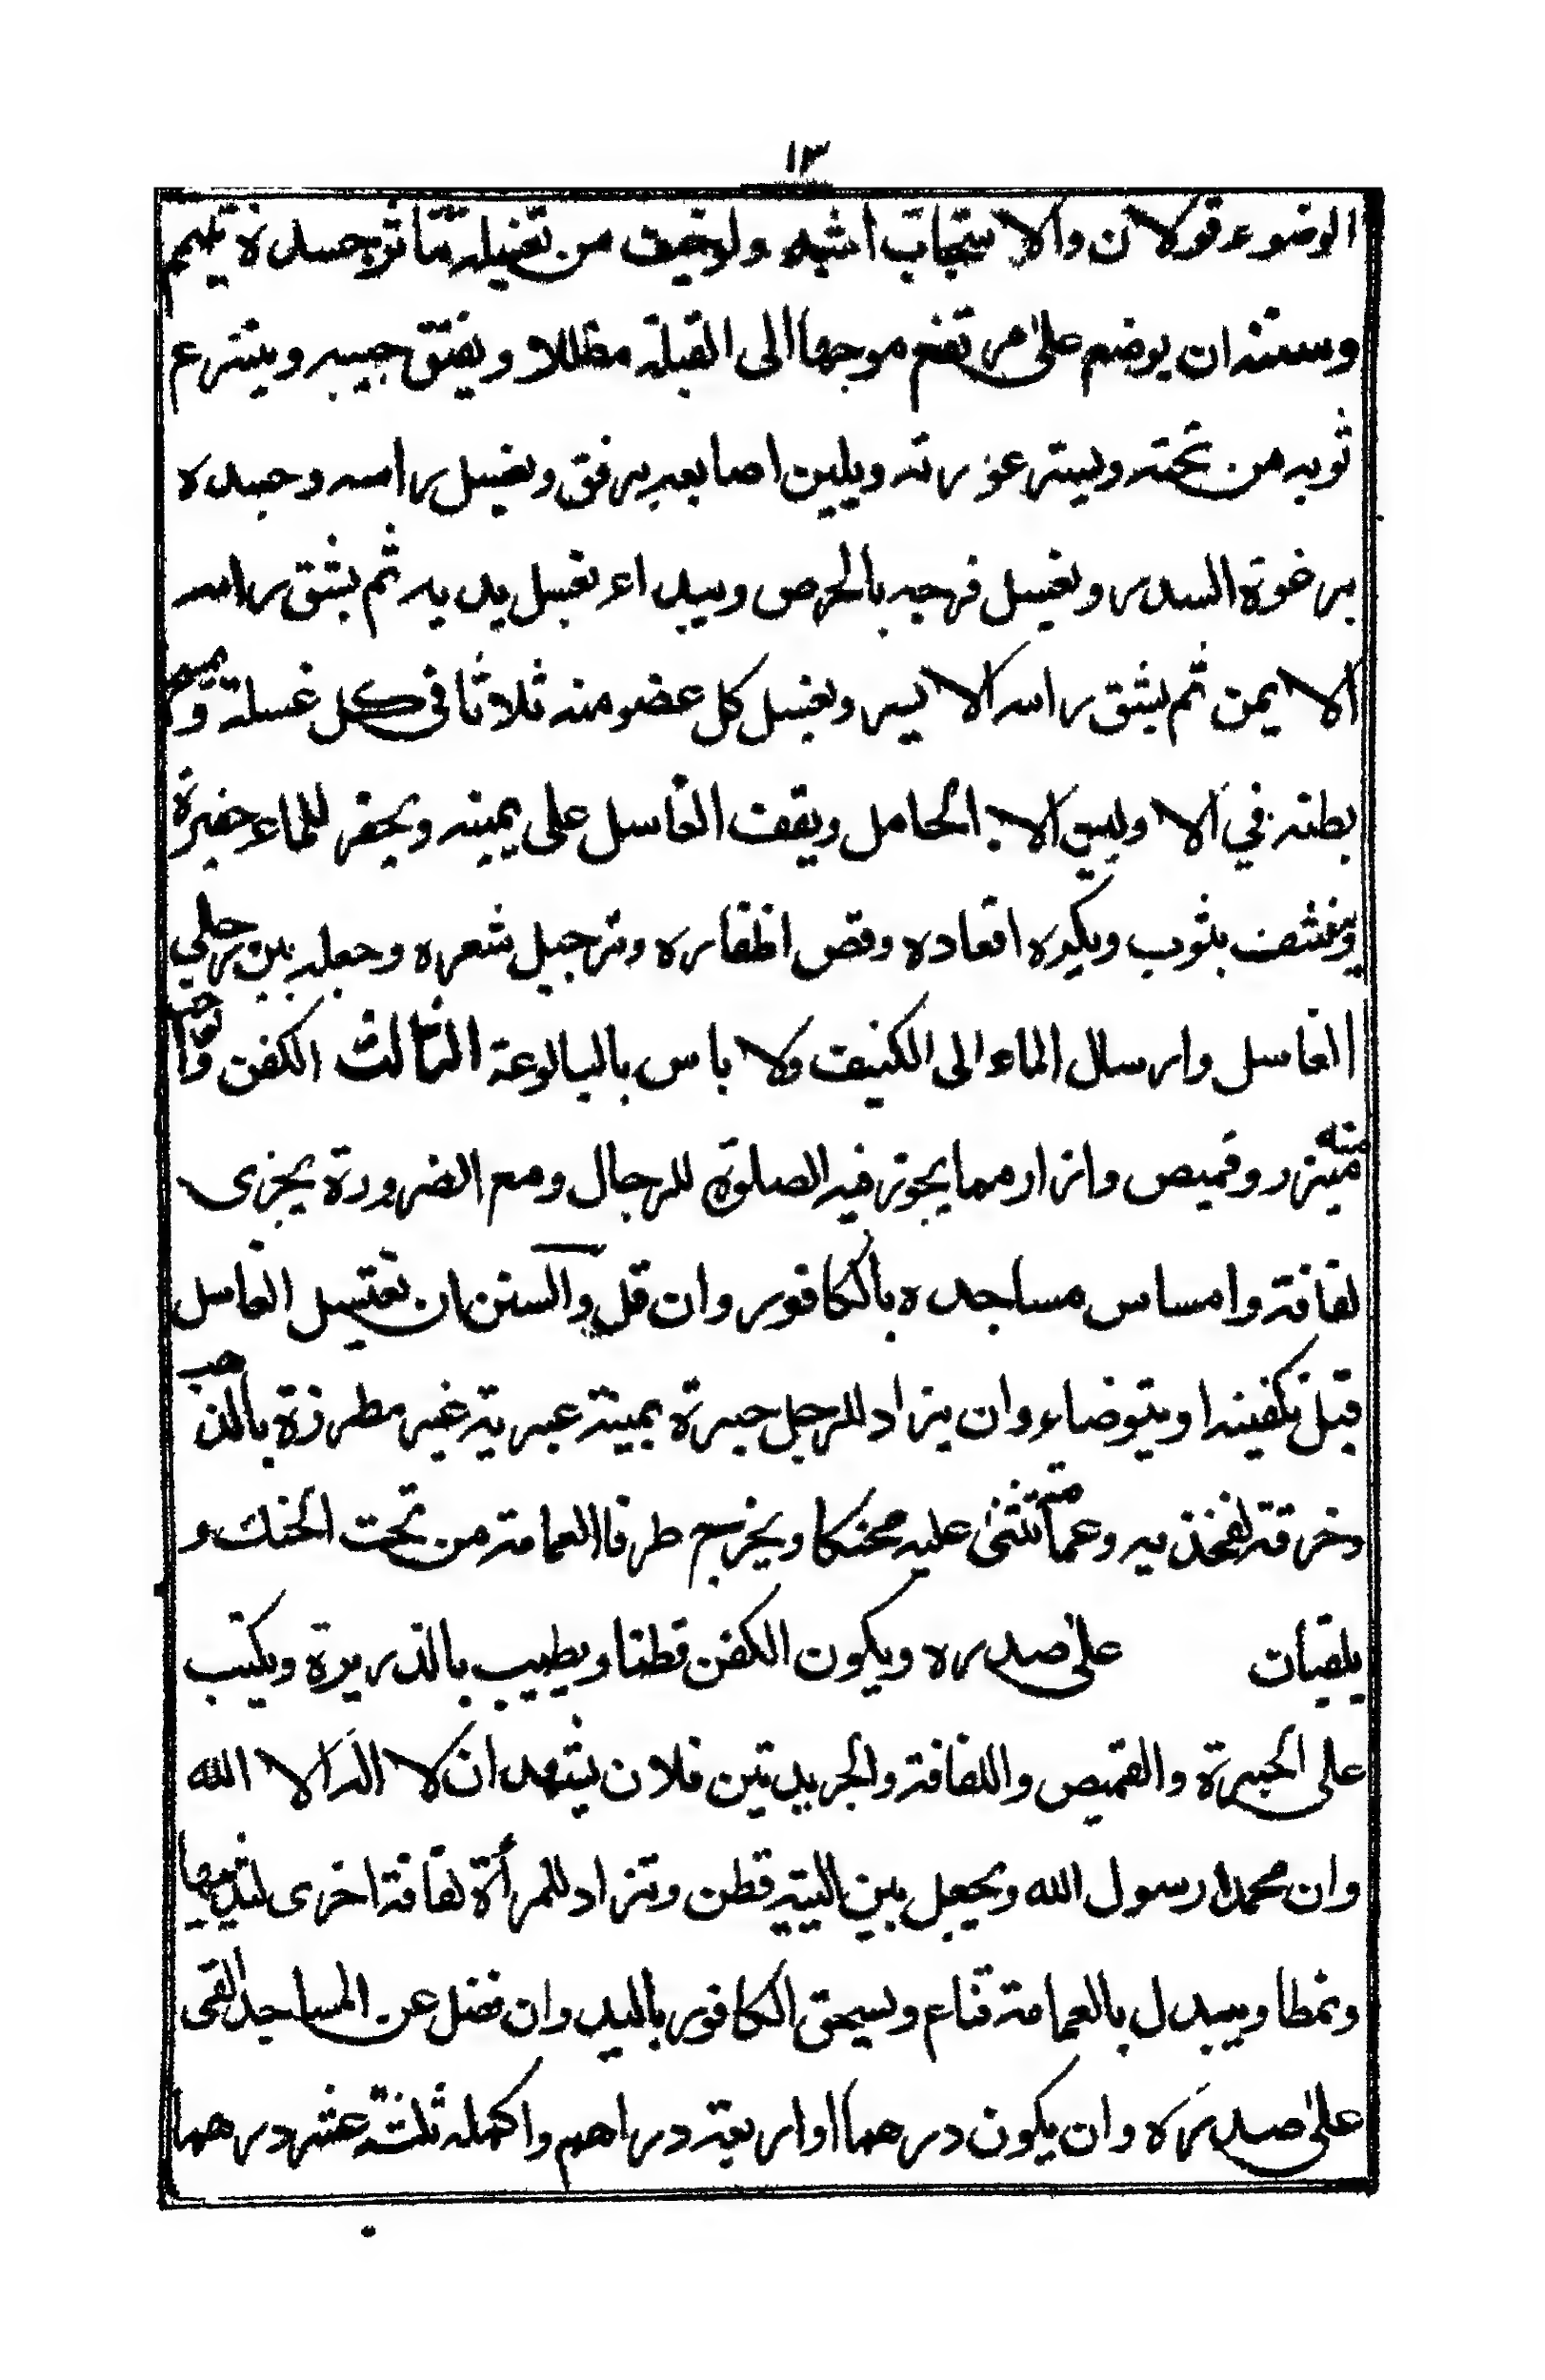 ١٣
الوضوء قولان والاستحباب اشبه ولو خيف من تغسيله تناثر جسده تيمم
وسننه ان يوضع على مرتفع موجها الى القبلة مظللا ويفتق جيبه وينزع
ثوبه من تحته ويستر عورته ويلين اصابعه برفق ويغسل راسه وجسده
برغوة السدر ويغسل فرجه بالحرض ويبداء بغسل يديه ثم بشق راسه
الايمن ثم بشق راسه الايسر ويغسل كل عضو منه ثلاثا في كل غسلة ويمسح
بطنه في الاوليين الا الحامل ويقف الغاسل على يمينه ويحفر للماء حفيرة
وينشف بثوب ويكره اقعاده وقص اظفاره وترجيل شعره وجعله بين رجلي
الغاسل وارسال الماء الى الكنيف ولا باس بالبالوعة الثالث الكفن والواجب
منه ميزر وقميص وازار مما يجوز فيه الصلوة للرجال ومع الضرورة يجزى
لفافة وامساس مساجده بالكافور وان قل والسنن ان يغتسل الغاسل
قبل تكفينه او يتوضاء وان يزاد للرجل حبرة يمنية عبرية غير مطرزة بالذهب
وخرقة لفخذيه وعمامة تثنى عليه محنكا ويخرج طرفا العمامة من تحت الحنك و
يلقيان على صدره ويكون الكفن قطنا ويطيب بالذريرة ويكتب
على الحبرة والقميص واللفافة والجريدتين فلان يشهد ان لا اله الا الله
وان محمدا رسول الله ويجعل بين اليتيه قطن وتزاد للمراة لفافة اخرى لثدييها
ونمطا ويبدل بالعمامة قناع ويسحق الكافور باليد وان فضل عن المساجد القى
على صدره وان يكون درهما او اربعة دراهم واكمله ثلثة عشر درهما